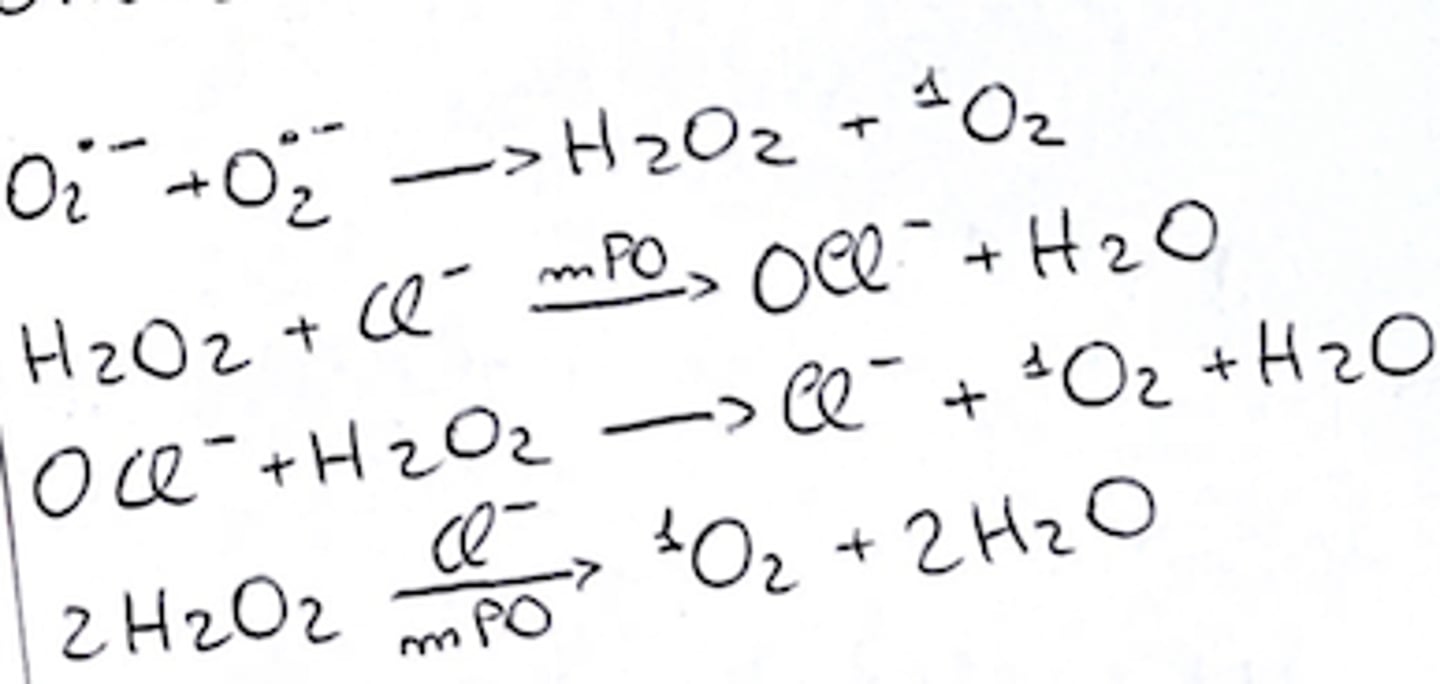 O₂˙⁻ + O₂˙⁻ → H₂O₂ + ¹O₂
H₂O₂ + Cl⁻ —mPO→ OCl⁻ + H₂O
OCl⁻ + H₂O₂ → Cl⁻ + ¹O₂ + H₂O
2H₂O₂ —Cl⁻/mPO→ ¹O₂ + 2H₂O